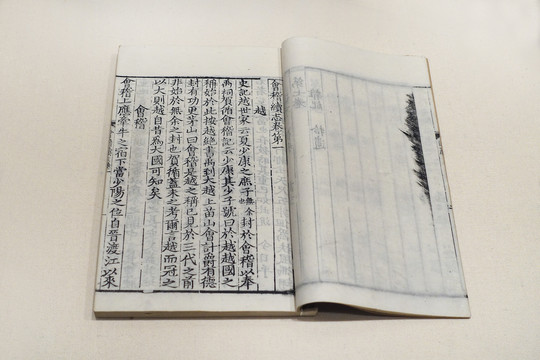 會稽續志卷第一
越
史記越世家云夏少康之庶子無余封於會稽以奉
禹祠賀循會稽記云少康其少子號曰於越越國之
稱始於此按越絕書禹到大越上苗山會計爵有德
封有功更茅山曰會稽是越之稱已見於三代之前
非始於無余之封也賀循蓋未之考爾言越而冠之
以大則越自昔為大國可知矣
會稽
會稽上應牽牛之宿下當少陽之位自晉渡江以來